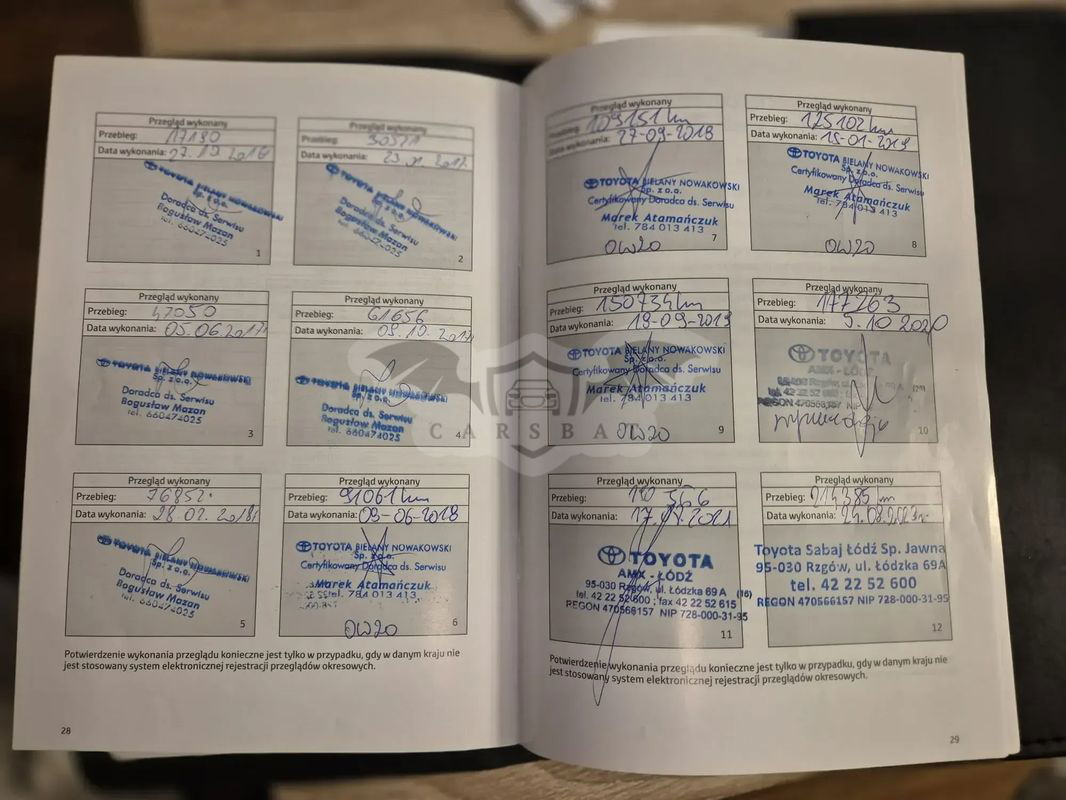 Przegląd wykonany
Przebieg: 17190
Data wykonania:
TOYOTA BIELANY NOWAKOWSKI
Sp. z o.o.
Doradca ds. Serwisu
Bogusław Mazan
tel. 660474025
1
Przegląd wykonany
Przebieg:
Data wykonania:
TOYOTA BIELANY NOWAKOWSKI
Sp. z o.o.
Doradca ds. Serwisu
Bogusław Mazan
tel. 660474025
2
Przegląd wykonany
Przebieg: 47050
Data wykonania: 05.06.2017
TOYOTA BIELANY NOWAKOWSKI
Sp. z o.o.
Doradca ds. Serwisu
Bogusław Mazan
tel. 660474025
3
Przegląd wykonany
Przebieg: 61656
Data wykonania: 09.10.2017
TOYOTA BIELANY NOWAKOWSKI
Sp. z o.o.
Doradca ds. Serwisu
Bogusław Mazan
tel. 660474025
4
Przegląd wykonany
Przebieg: 76852
Data wykonania: 28.02.2018
TOYOTA BIELANY NOWAKOWSKI
Sp. z o.o.
Doradca ds. Serwisu
Bogusław Mazan
tel. 660474025
5
Przegląd wykonany
Przebieg: 91061 km
Data wykonania: 09-06-2018
TOYOTA BIELANY NOWAKOWSKI
Sp. z o.o.
Certyfikowany Doradca ds. Serwisu
Marek Atamańczuk
tel. 784 013 413
0W20
6
Potwierdzenie wykonania przeglądu konieczne jest tylko w przypadku, gdy w danym kraju nie
jest stosowany system elektronicznej rejestracji przeglądów okresowych.
28
Przegląd wykonany
Przebieg: 109151 km
Data wykonania: 27-09-2018
TOYOTA BIELANY NOWAKOWSKI
Sp. z o.o.
Certyfikowany Doradca ds. Serwisu
Marek Atamańczuk
tel. 784 013 413
0W20
7
Przegląd wykonany
Przebieg: 125102 km
Data wykonania: 15-01-2019
TOYOTA BIELANY NOWAKOWSKI
Sp. z o.o.
Certyfikowany Doradca ds. Serwisu
Marek Atamańczuk
tel. 784 013 413
0W20
8
Przegląd wykonany
Przebieg: 150734 km
Data wykonania: 19-09-2019
TOYOTA BIELANY NOWAKOWSKI
Sp. z o.o.
Certyfikowany Doradca ds. Serwisu
Marek Atamańczuk
tel. 784 013 413
0W20
9
Przegląd wykonany
Przebieg: 177263
Data wykonania: 5.10 2020
TOYOTA
AMX - ŁÓDŹ
95-030 Rzgów, ul. Łódzka 69 A
tel. 42 22 52 600
REGON 470566157 NIP
10
Przegląd wykonany
Przebieg:
Data wykonania:
TOYOTA
AMX - ŁÓDŹ
95-030 Rzgów, ul. Łódzka 69 A (16)
tel. 42 22 52 600 ; fax 42 22 52 615
REGON 470566157 NIP 728-000-31-95
11
Przegląd wykonany
Przebieg: 214385 km
Data wykonania:
Toyota Sabaj Łódź Sp. Jawna
95-030 Rzgów, ul. Łódzka 69A
tel. 42 22 52 600
REGON 470566157 NIP 728-000-31-95
12
Potwierdzenie wykonania przeglądu konieczne jest tylko w przypadku, gdy w danym kraju nie
jest stosowany system elektronicznej rejestracji przeglądów okresowych.
29
CARSBAT